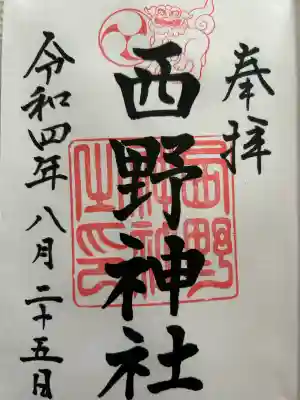 奉拝
西野神社
西野
神社
之印
令和四年八月二十五日